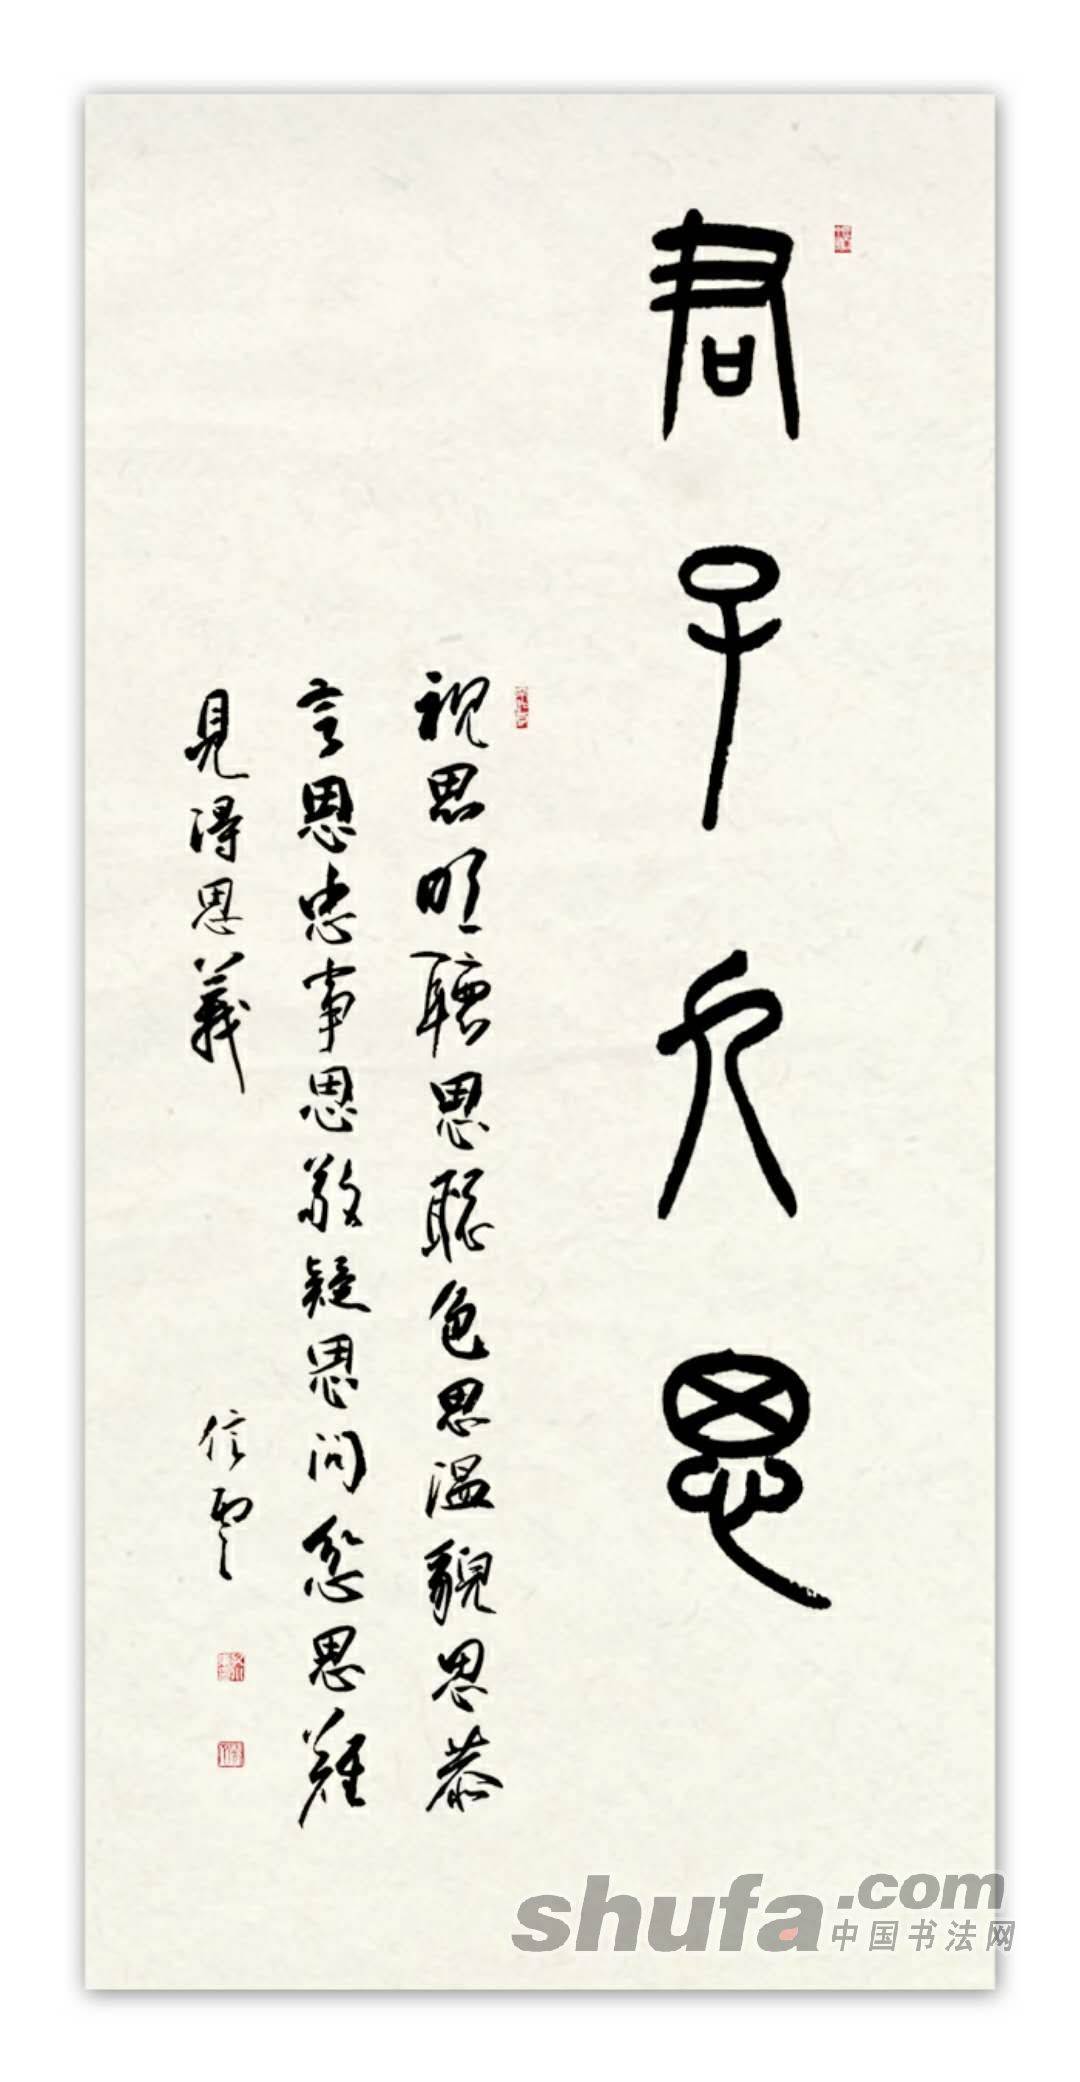 君子九思
視思明聽思聰色思溫貌思恭
言思忠事思敬疑思問忿思難
見得思義
信
shufa.com
中国书法网